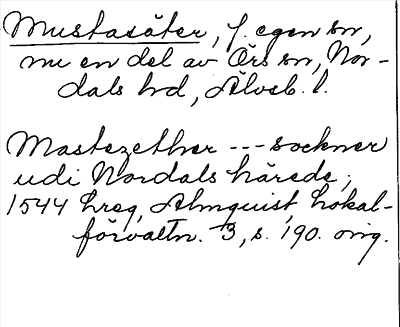 Mustasäter, f. egen sn,
nu en del av Örs sn, Nor-
dals hd, Älvsb. l.
Mastezether --- sockner
udi Nordals härede;
1544 hreg, Almquist, Lokal-
förvaltn. 3, s. 190. orig.